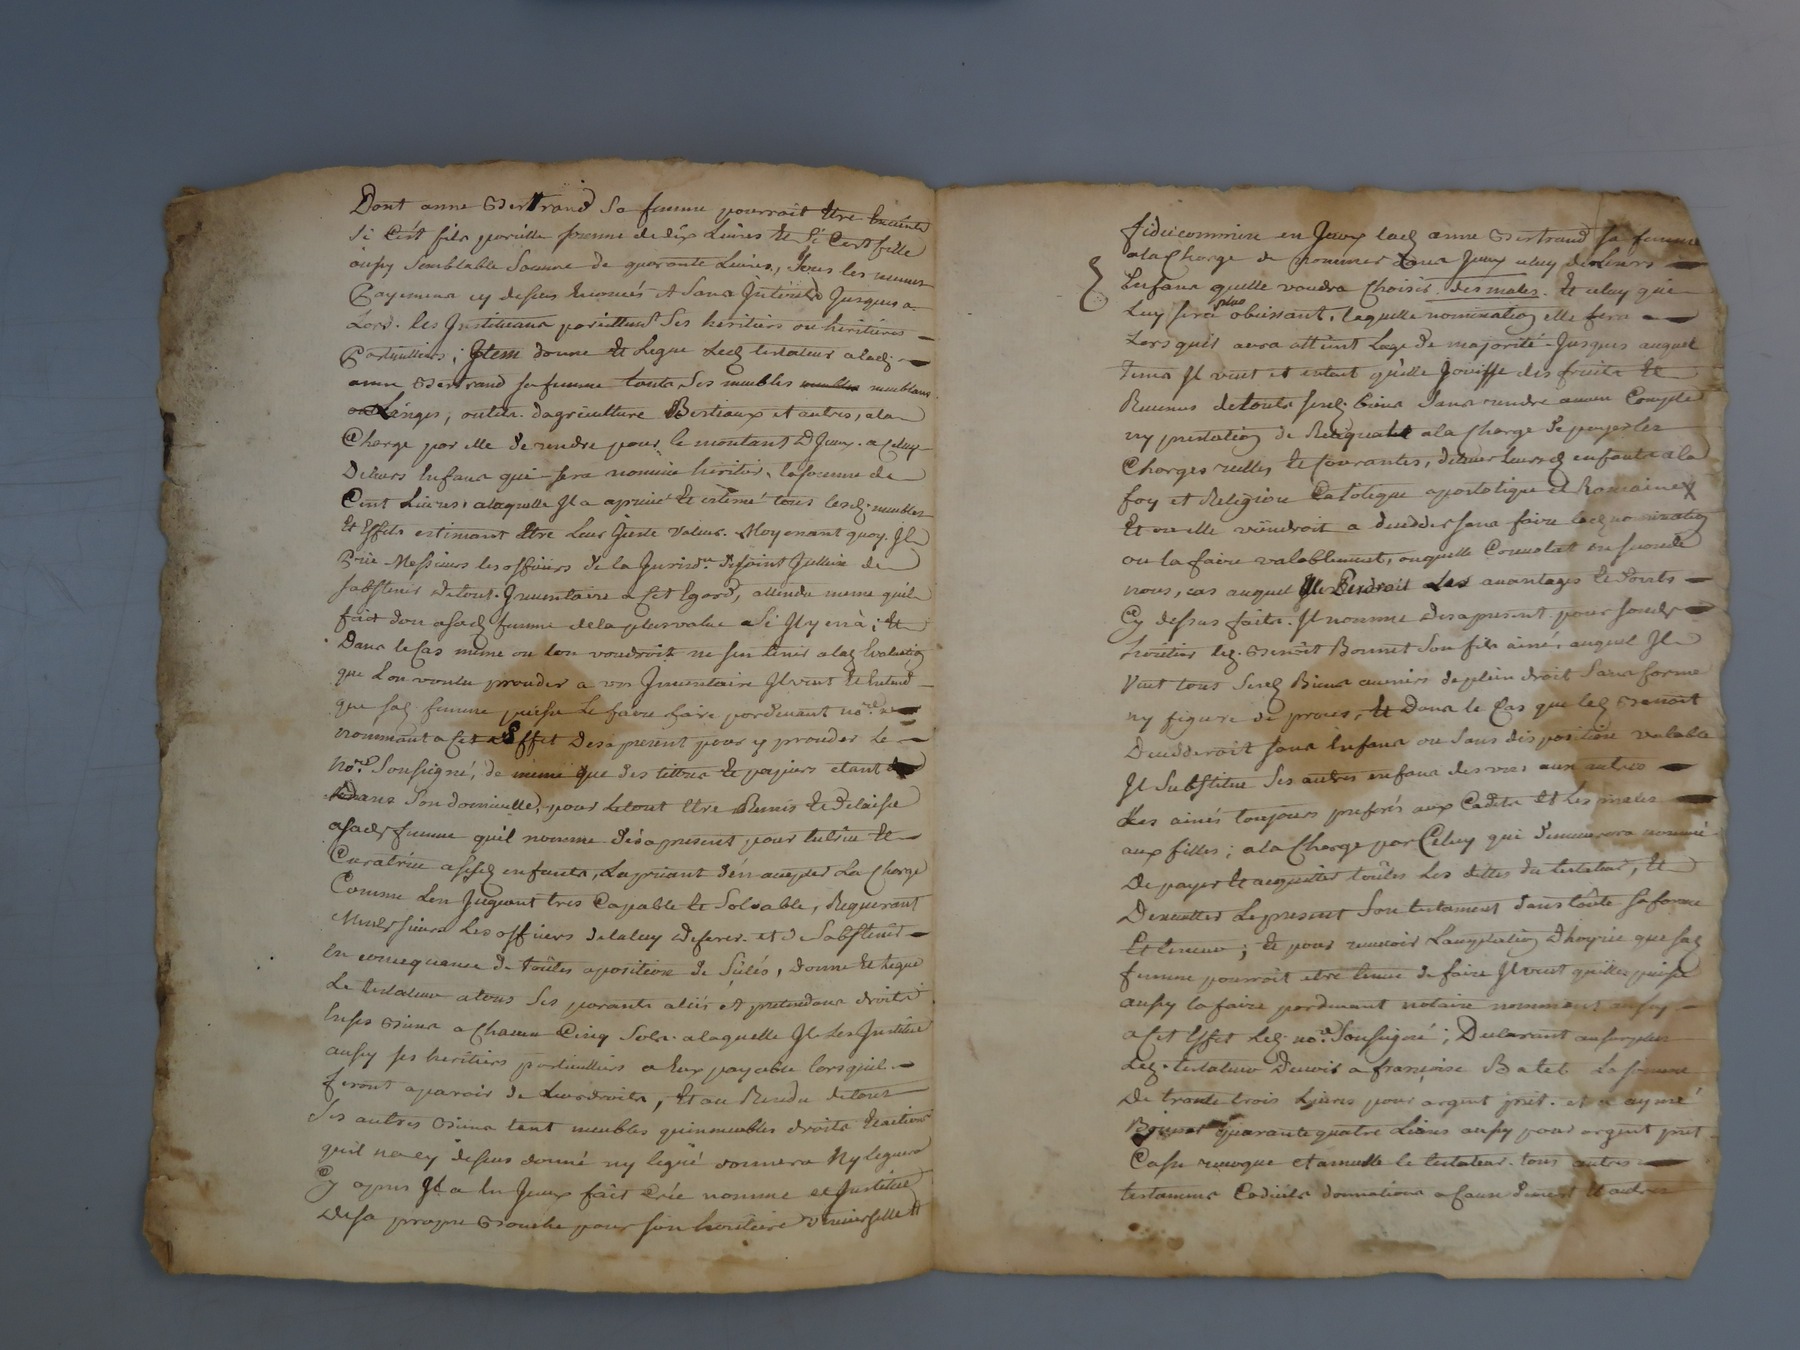 Dont anne Bertrand Sa femme pourrait Etre Enceinte
Si C'est fils pareille somme de dix Livres Et Si C'est fille
aussy Semblable Somme de quarante Livres, Sous les memes
Payemens cy dessus Enoncés et Sans Intérêts Jusques a
Lors. les Instituans par Ses heritiers ou heritieres
Particulliers; Item donne Et Legue Led. testateur a lad.
anne Bertrand sa femme touts Ses meubles meublans
Linges, outils d'agriculture Bestiaux et autres, a la
Charge par elle de rendre pour le montant D'Iceux a Celuy
De leurs Enfans qui sera nommé heritier, la somme de
Cent Livres, a laquelle Il a aprecié Et estimé tous lesd. meubles
Et Effets estimant Etre Leur Juste Valeur. Moyenant quoy Il
Prie Messieurs les officiers de la Jurisd.on de Saint Jullien de
s'abstenir de tout Inventaire a Cet Egard, attendu meme qu'il
fait don a sad. femme de la plus value Si Il y en a; Et
Dans le Cas meme ou l'on voudroit ne s'en tenir a lad. Evaluation
que L'on voulu proceder a un Inventaire Il veut Et Entend
que sad. femme puisse Le faire faire pardevant no.re
nommant a Cet Effet Des a present pour y proceder Le
No.re Soussigné, de meme que des titres Et papiers etant
dans Son domicille, pour Le tout Etre Remis Et delaissé
a sad. femme qu'il nomme dès a present pour tutrice Et
Curatrice a sesd. enfants, La priant d'en accepter La Charge
Comme L'en Jugeant tres Capable Et Solvable, Requerant
Messieurs Les officiers de la luy deferer et de S'abstenir
En consequance de toutes aposition de Sçelés, Donne Et Legue
Le testateur a tous Ses parants aliés et pretendans droits
En ses Biens a Chacun Cinq Sols a laquelle Il Les Institue
aussy ses heritiers particulliers a Eux payable lors qu'il
feront aparoir de Leurs droits, Et au Residu de tous
Ses autres Biens tant meubles qu'immeubles droits Et actions
qu'il n'a cy dessus donné ny legué donnera Ny leguera
Cy apres Il a En Iceux fait Créé nommé et Institué
De sa propre Bouche pour son heritiere Universelle Et
fideicommise en Iceux lad. anne Bertrand sa femme
a la Charge de nommer dans Iceux celuy de Leurs
Enfans quelle voudra Choisir des males. Et celuy qui
Luy sera plus obeissant, laquelle nomination elle fera
Lors qu'il aura atteint L'age de majorité Jusques auquel
Tems Il veut et entent qu'elle Jouisse des fruits Et
Revenus de touts sesd. biens Sans rendre aucun Compte
ny prestation de Reliquat a la Charge de payer les
Charges reelles Et Courantes, d'elever leursd. enfants a la
foy et Religion Catolique apostolique et Romaine
Et ou elle viendroit a decedder sans faire lad. nomination
ou la faire valablement, ou quelle Convolat en seconde
noces, cas auquel Elle Perdrait Les avantages Et Droits
Cy dessus faits. Il nomme Des a present pour sond.
heritier led. Benoit Bonnet Son fils ainé, auquel Il
Veut tous Sesd. Biens avenirs de plein droit Sans forme
ny figure de proces, Et Dans le Cas que led. Benoit
Decedderoit sans Enfans ou Sans disposition valable
Il Substitue Ses autres enfans des uns aux autres
Les ainés toujours preferés aux Cadets Et Les males
aux filles; a la Charge par Celuy qui demeurera nommé
De payer Et acquitter toutes Les dettes du testateur, Et
D'executter Le present Son testament dans toute sa forme
Et teneur; Et pour recevoir L'acceptation D'hoirie que sad.
femme pourroit etre tenue de faire Il veut qu'elle puisse
aussy la faire pardevant notaire nommant aussy
a Cet Effet Led. no.re Soussigné; Declarant au surplus
Led. testateur Devoir a françoise Batet La somme
De trante trois Livres pour argent pret. et a aymé
Bonnet quarante quatre Livres aussy pour argent pret
Casse revoque et annulle le testateur tous autres
testamens Codicils donnations a Cause de mort Et autres